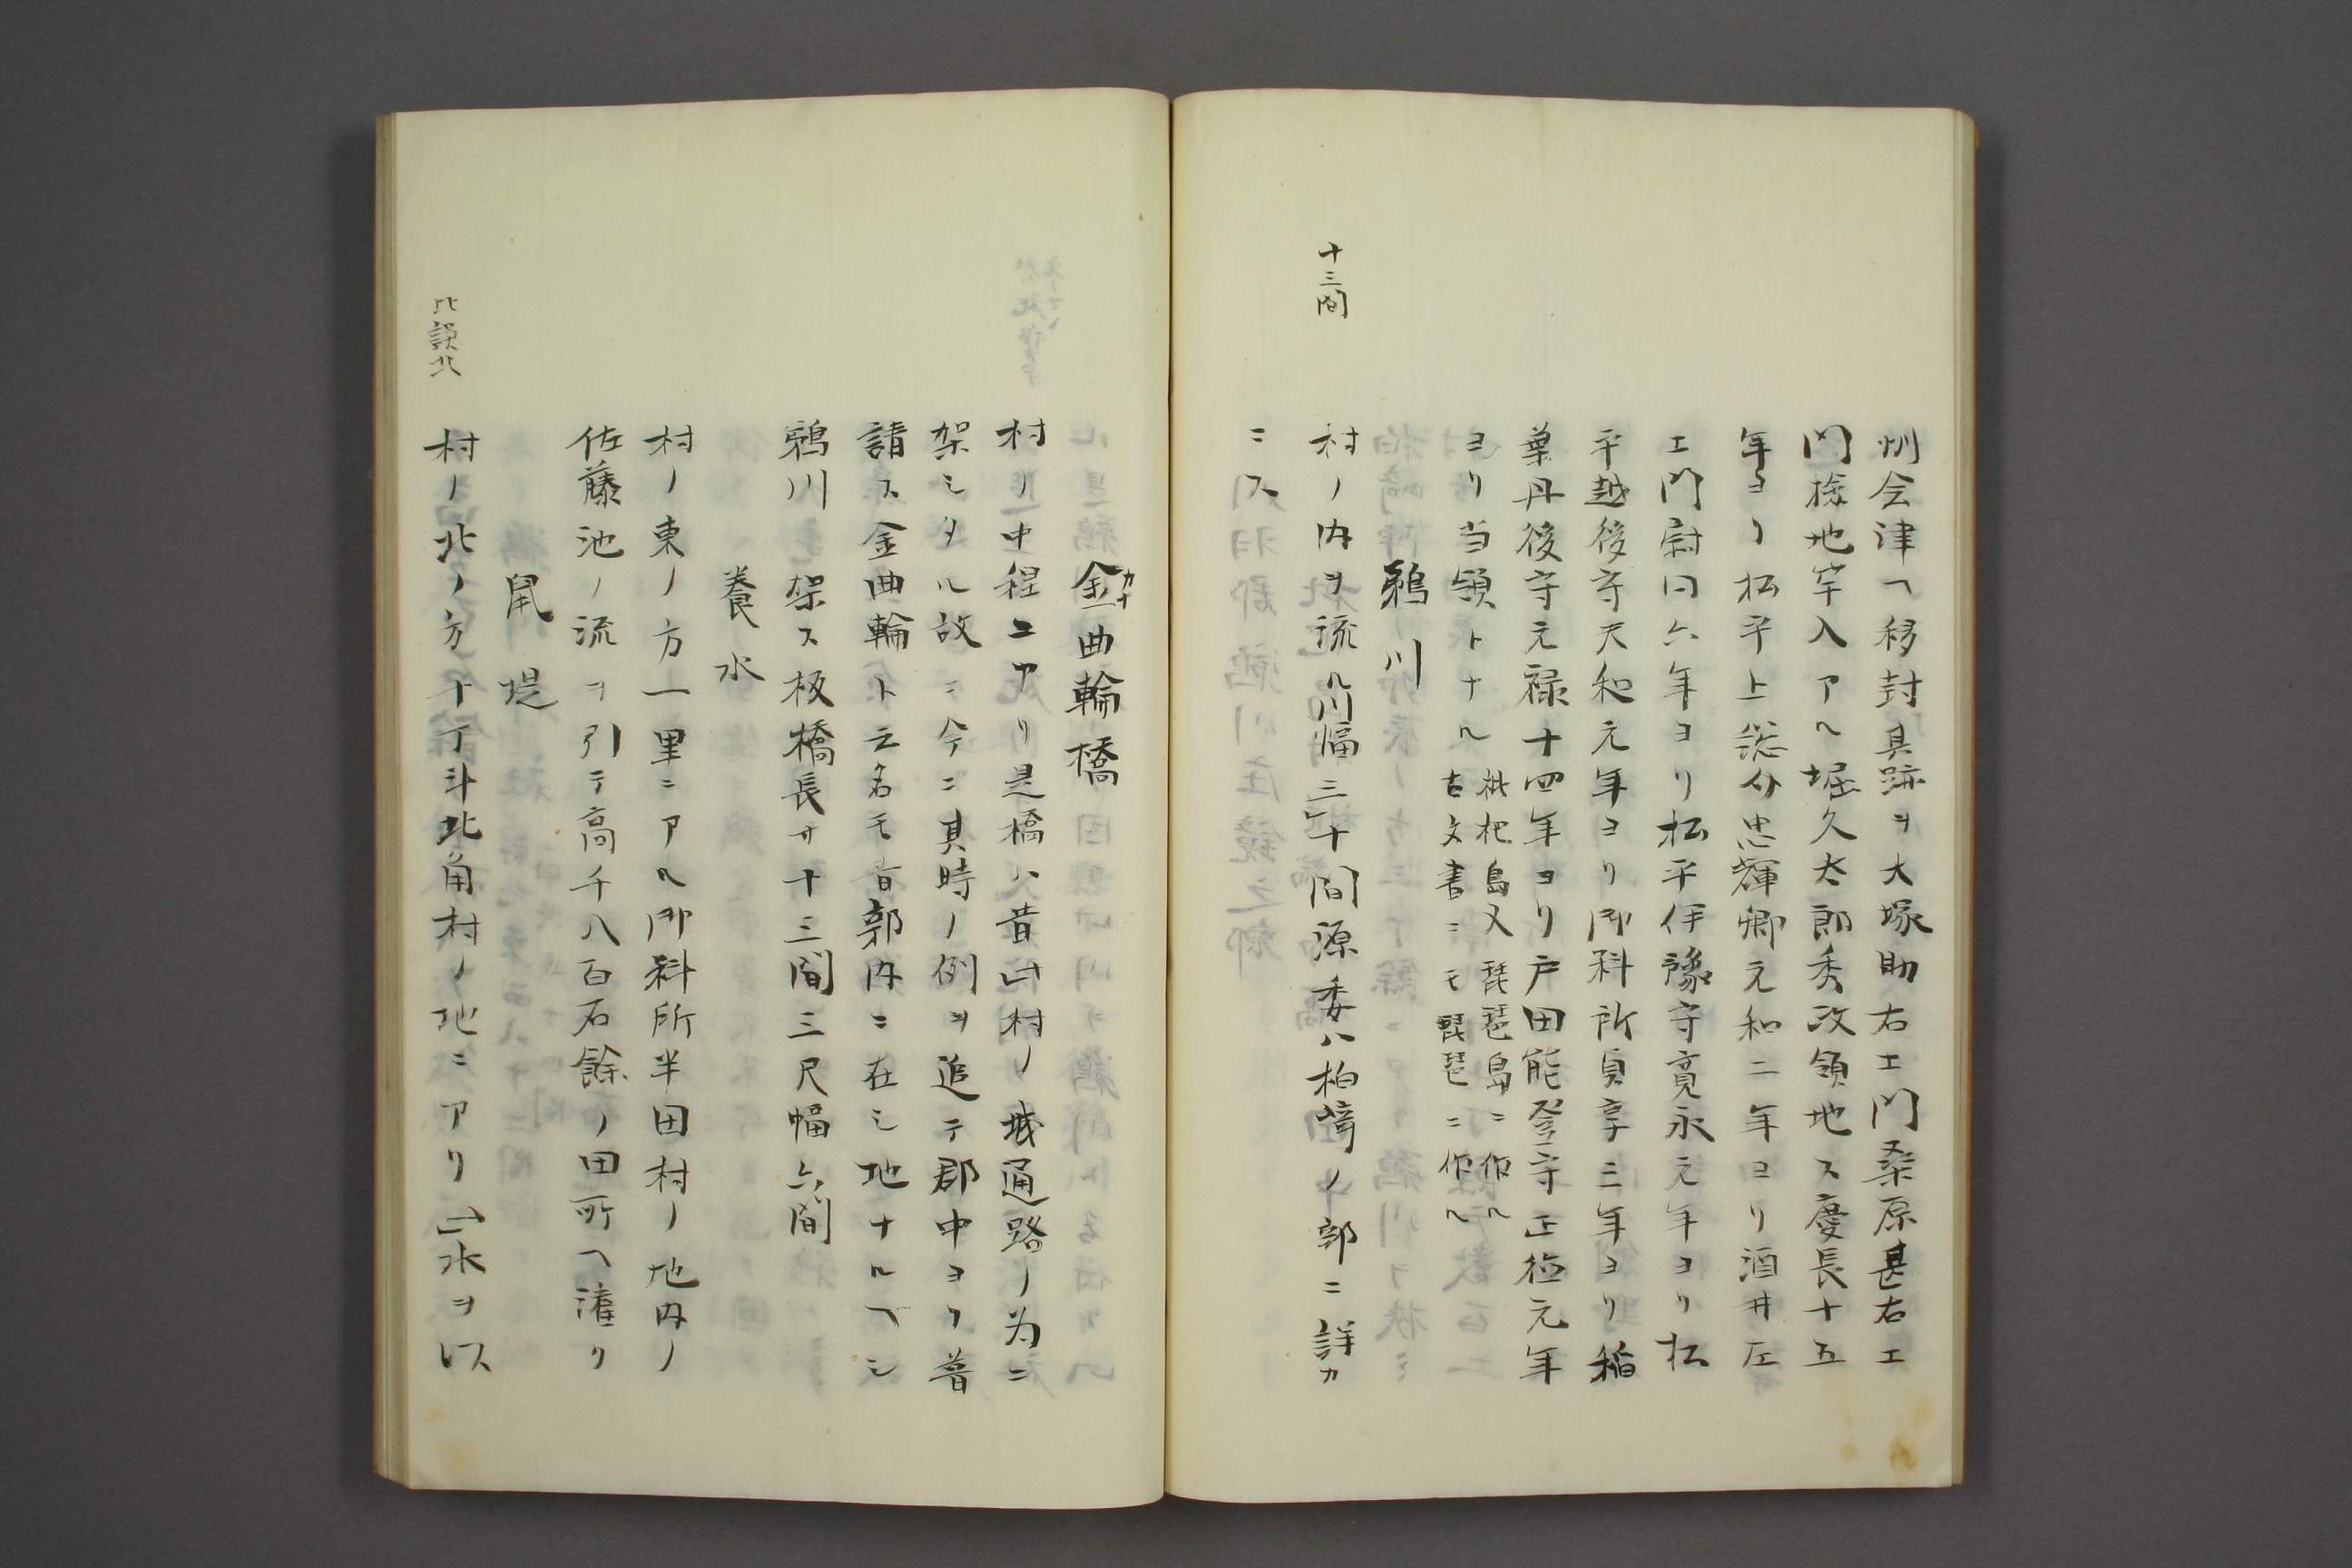 州会津ヘ移封其跡ヲ大塚助右エ門桑原甚右エ
門検地竿入アヘ堀久太郎秀政領地ス慶長十五
年ヨリ松平上総介忠輝卿元和二年ヨリ酒井左
エ門尉同六年ヨリ松平伊豫守寛永元年ヨリ松
平越後守天和元年ヨリ御料所貞享三年ヨリ稲
葉丹後守元禄十四年ヨリ戸田能登守正徳元年
ヨリ当領トナル
枇杷島又琵琶島ニ作ル
古文書ニモ琵琶ニ作ル
鵜川
十三間
村ノ内ヲ流ル川幅三十間源委ハ柏崎ノ部ニ詳カ
ニス
金曲輪橋
カナ
村ノ中程ニアリ是橋ハ昔此村ノ城通路ノ為ニ
架シタル故ニ今ニ其時ノ例ヲ追テ郡中ヨリ普
請ス金曲輪ト云名モ昔郭内ニ在シ地ナルベシ
鵜川架ス板橋長サ十三間三尺幅六間
養水
村ノ東ノ方一里ニアル御料所半田村ノ地内ノ
佐藤池ノ流ヲ引テ高千八百石餘ノ田所ヘ潅り
鼠堤
比誤北
村ノ北ノ方十丁斗北角村ノ地ニアリ水ヲ以